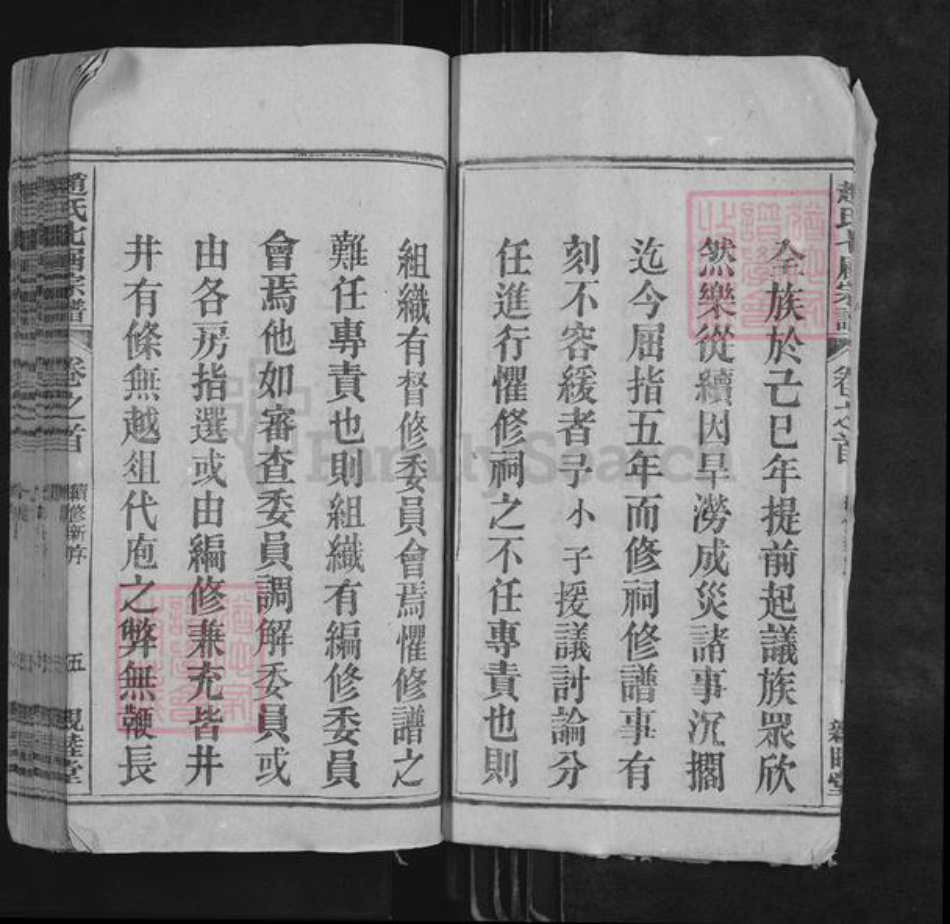 全族於己巳年提前起議族眾欣
然樂從續因旱澇成災諸事沉擱
迄今屈指五年而修祠修譜事有
刻不容緩者予小子援議討論分
任進行懼修祠之不任專責也則
組織有督修委員會焉懼修譜之
難任專責也則組織有編修委員
會焉他如審查委員調解委員或
由各房指選或由編修兼充皆井
井有條無越俎代庖之弊無鞭長
趙氏七届宗譜
卷之首
續修新序
五
親睦堂
FamilySearch